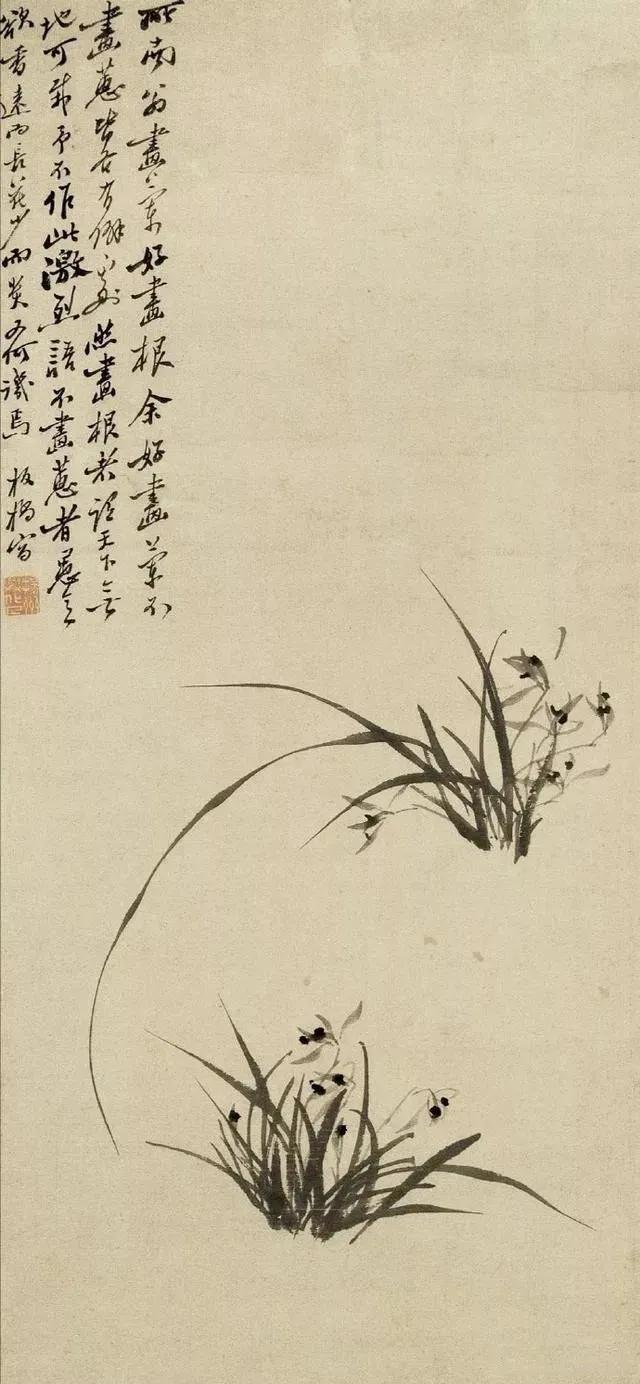 所南翁畫蘭好畫根余好畫蘭不
畫蕙皆各有僻然畫根者謂天下無
地可栽予不作此激烈語不畫蕙者愚意
欲香遠而長花少而貴又何譏焉 板橋寫